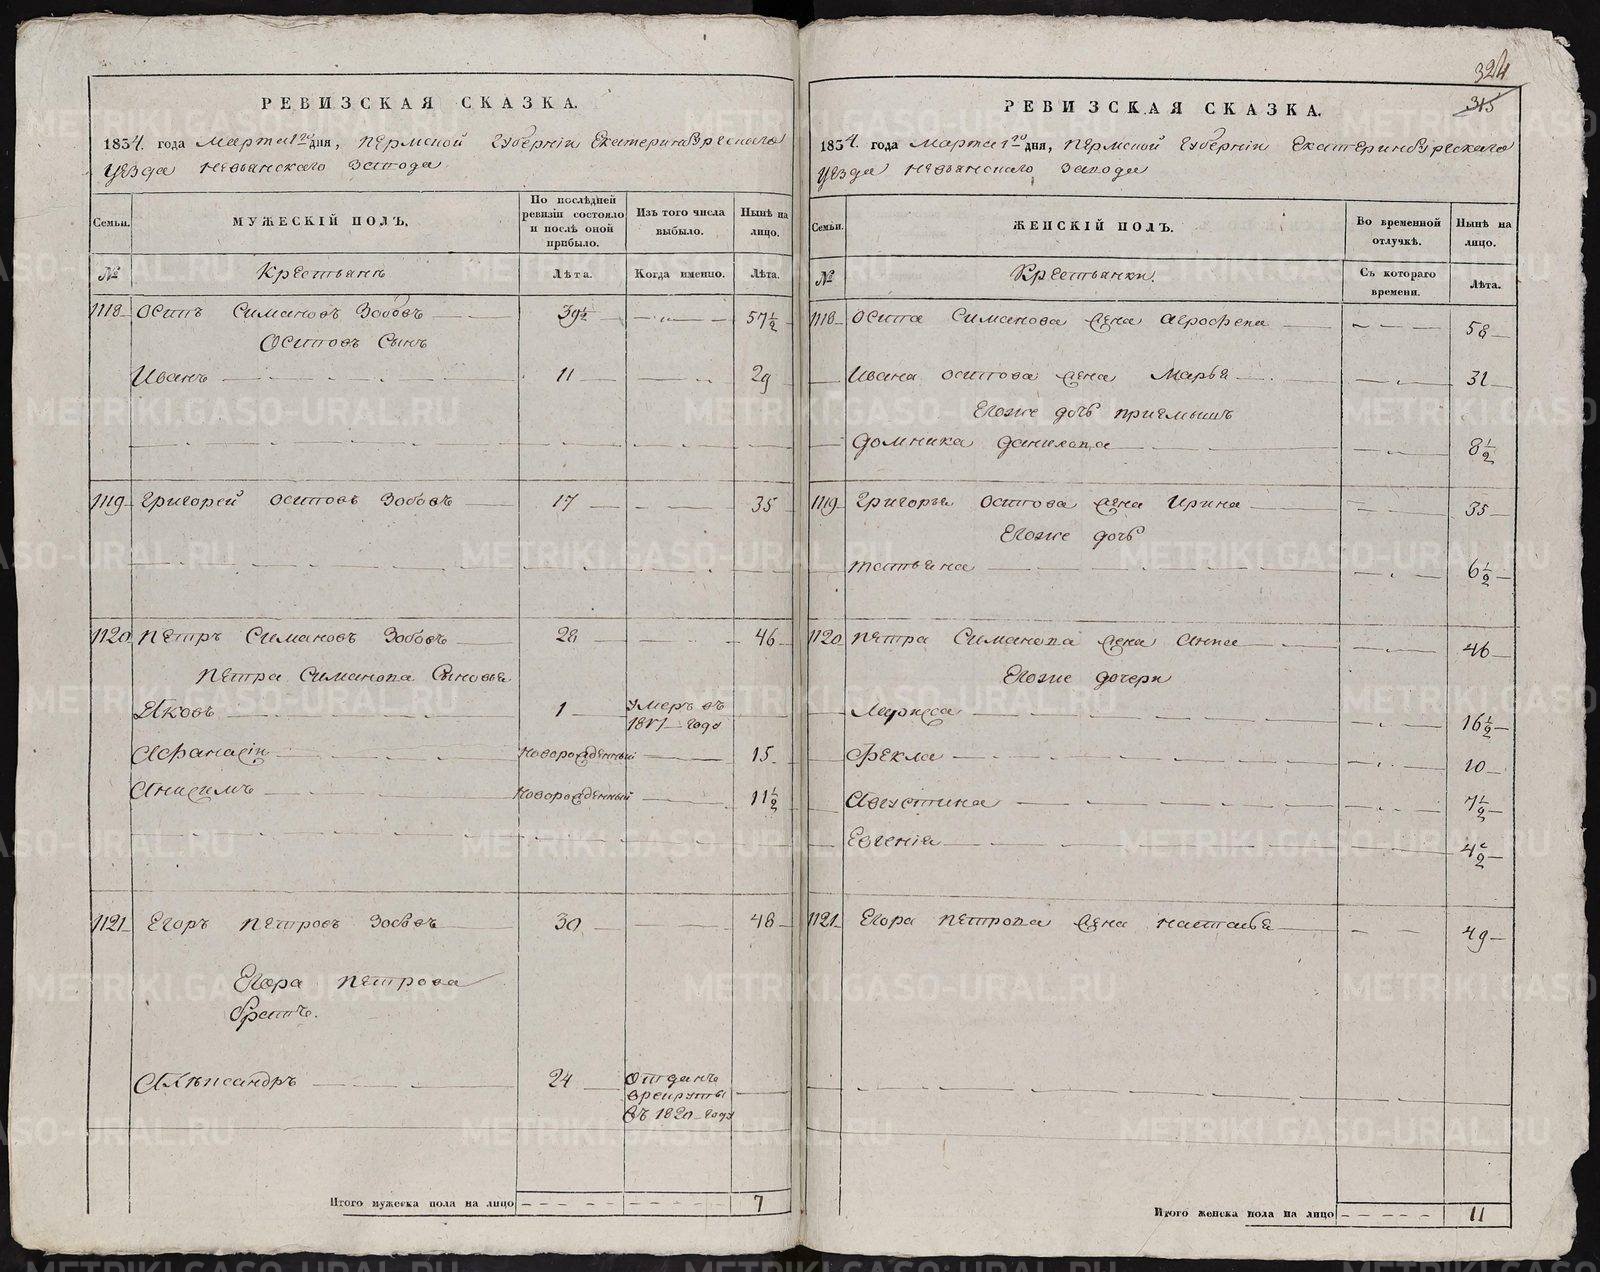 РЕВИЗСКАЯ СКАЗКА.
1834. года Марта 1го дня, Пермской Губерніи Екатеринбургскаго
уезда Невьянскаго завода
Семьи.
МУЖЕСКІЙ ПОЛЪ.
По послѣдней ревизіи состояло и послѣ оной прибыло.
Изъ того числа выбыло.
Нынѣ на лицо.
№
Крестьяне
Лѣта.
Когда именно.
Лѣта.
1118 Осипъ Симановъ Зобовъ 39½ 57½
Осиповъ Сынъ
Иванъ 11 29
1119 Григорей Осиповъ Зобовъ 17 35
1120 Петръ Симановъ Зобовъ 28 46
Петра Симанова Сыновья
Яковъ 1 умеръ въ
1817 году
Афанасіи Новорожденный 15
Анисимъ Новорожденный 11½
1121 Егоръ Петровъ Зобовъ 30 48
Егора Петрова
братъ.
Александръ 24 Отданъ
в рекруты
въ 1820 году
Итого мужеска пола на лицо 7
324
315
РЕВИЗСКАЯ СКАЗКА.
1834. года Марта 1го дня, Пермской Губерніи Екатеринбургскаго
уезда Невьянскаго завода
Семьи.
ЖЕНСКІЙ ПОЛЪ.
Во временной отлучкѣ.
Нынѣ на лицо.
№
Крестьянки.
Съ котораго времени.
Лѣта.
1118 Осипа Симанова жена Аграфена 58
Ивана Осипова жена Марья 31
Егоже дочь приемышъ
Домника Данилова 8½
1119 Григорья Осипова жена Ирина 35
Егоже дочь
Татьяна 6½
1120 Петра Симанова жена Анна 46
Егоже дочери
Мариса 16½
Фекла 10
Августина 7½
Евгенія 4½
1121 Егора Петрова жена Наталья 49
Итого женска пола на лицо 11
METRIKI.GASO-URAL.RU